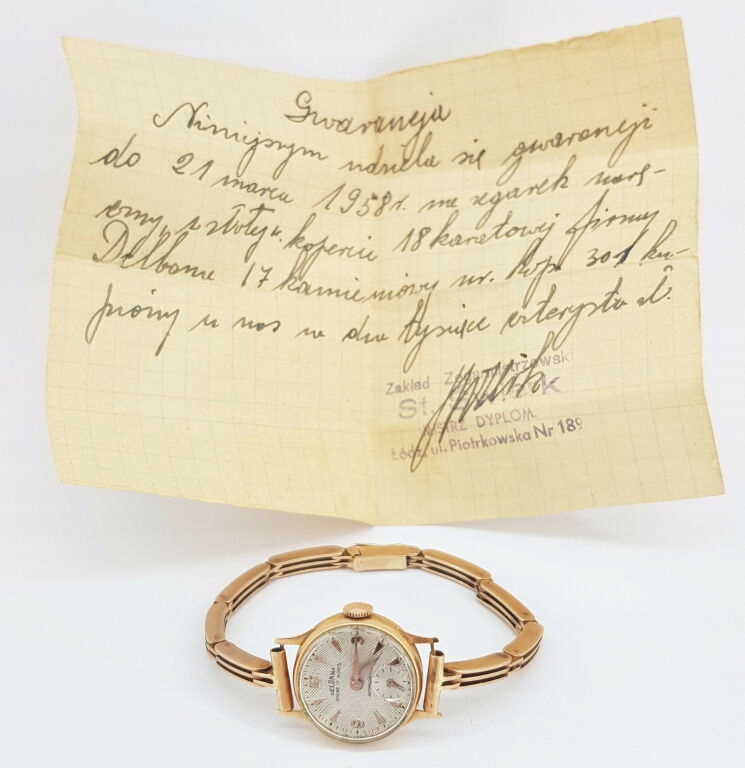 Gwarancja
Niniejszym udziela się gwarancji
do 21 marca 1958 r. na zegarek narę-
czny, w złotej kopercie 18 karatowej firmy
Delbana 17 kamieniowy nr. kop. 301 ku-
piony u nas za dwa tysiące czterysta zł.
Zakład Zegarmistrzowski
St.
MISTRZ DYPLOM.
Łódź, ul. Piotrkowska Nr 189
DELBANA